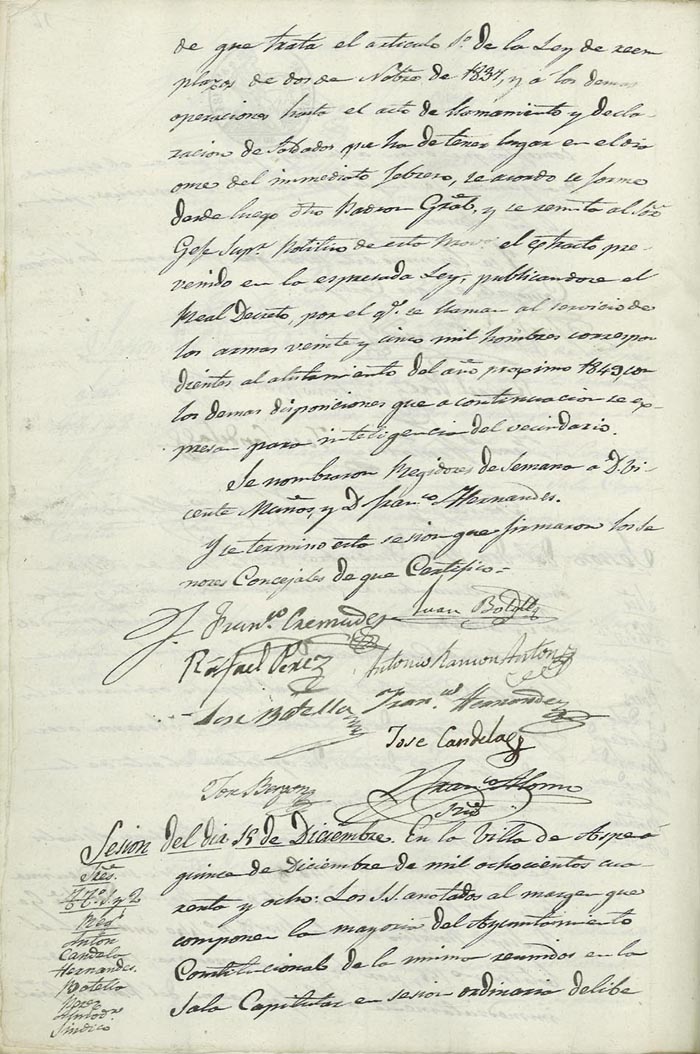 de que trata el articulo 1º de la Ley de reem
plazos de dos de Nobre de 1837, y a los demas
operaciones hasta el acto de llamamiento y decla-
racion de Soldados que ha de tener lugar en el dia
once del inmediato febrero, se acordo se forme
desde luego dho Padron Gral, y se remita al Sor
Gefe Supr Politico de esta Prova el extracto pre-
venido en la espresada Ley, publicandose el
Real Decreto, por el ql se llaman al servicio de
las armas veinte y cinco mil hombres correspon
dientes al alistamiento del año proximo 1849 con
las demas disposiciones que a continuacion se ex-
presan para inteligencia del vecindario.
Se nombraron Regidores de Semana a D. Vi-
cente Muñoz, y D. Franco Hernandes.
Y se termino esta sesion que firmaron los Se
ñores Concejales de que Certifico=
Franco Cremades Juan Botella
Rafael Perez Antonio Ramon Anton
Jose Botella Franco Hernandez
Jose Candela
Franco Alonso
Srio
Sesion del dia 15 de Diciembre. En la Villa de Aspe á
quince de Diciembre de mil ochocientos cua
renta y ocho: Los SS. anotados al margen que
componen la mayoria del Ayuntamiento
Constitucional de la misma reunidos en la
Sala Capitular en sesion ordinaria delibe
Sres.
Ttes. 1 y 2
Regs
Anton
Candela
Hernandes.
Botella
Perez
Sindico